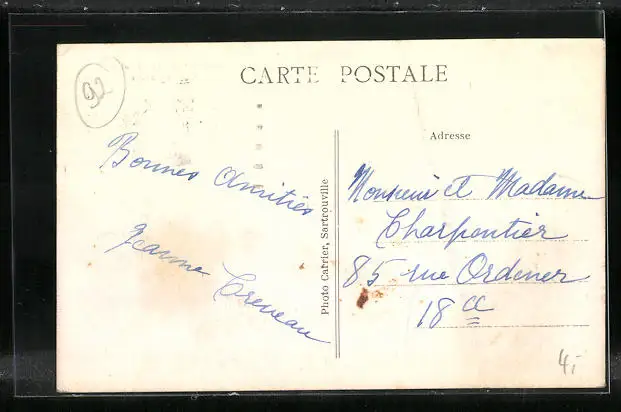 92
CARTE POSTALE
Adresse
Bonnes Amitiés
Jeanne Creneau
Photo Carrier, Sartrouville
Monsieur et Madame
Charpentier
85 rue Ordener
18 e
4,-